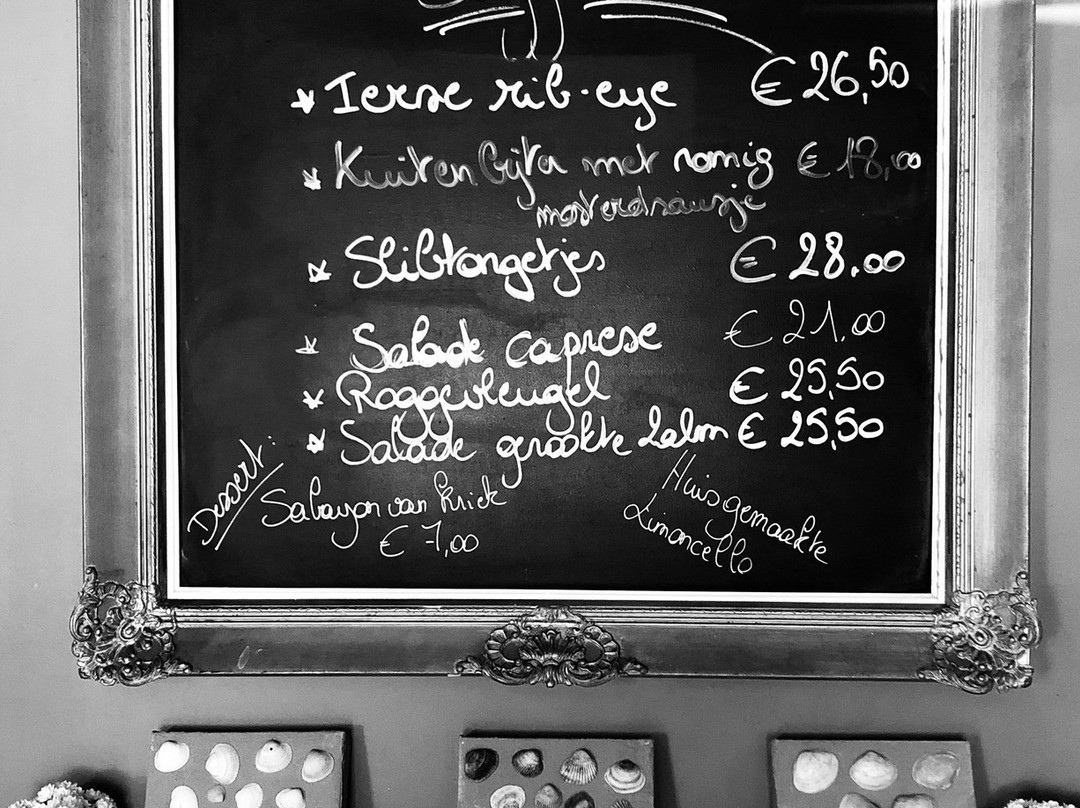 * Ierse rib-eye € 26,50
* Kuitenbijter met romig € 18,00
mosterdsausje
* Slibtongetjes € 28.00
* Salade caprese € 21,00
* Roggevleugel € 25,50
* Salade gerookte zalm € 25,50
Dessert:
Sabayon van kriek
€ 7,00
Huisgemaakte
Limoncello